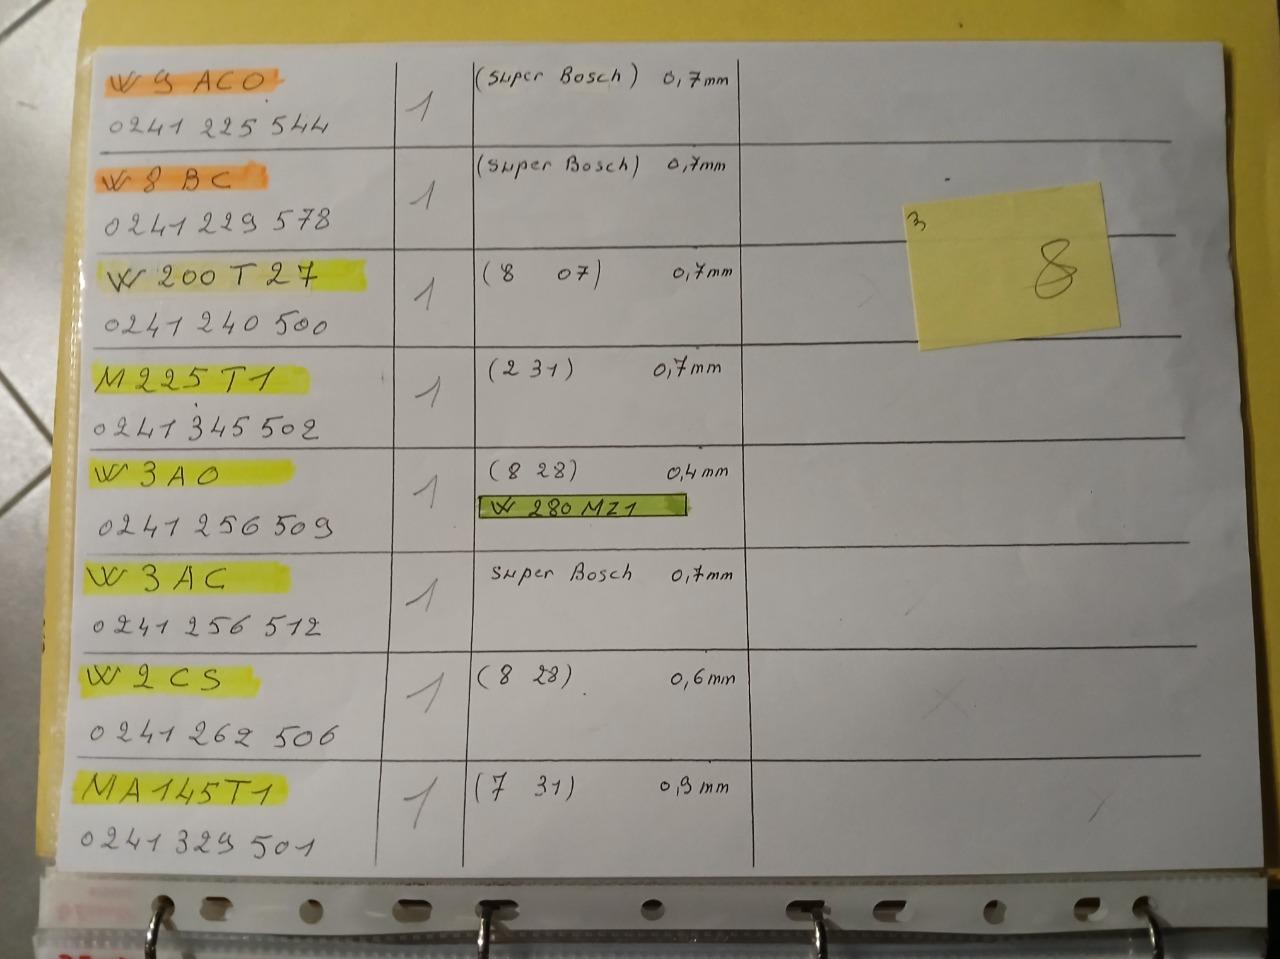 W 9 AC0 1 (Super Bosch) 0,7mm
0241 225 544
W 8 BC 1 (Super Bosch) 0,7mm
0241 229 578
W 200 T 27 1 (8 07) 0,7mm
0241 240 500
M225 T1 1 (2 31) 0,7mm
0241 345 502
W 3 A0 1 (8 28) 0,4mm
W 280 MZ1
0241 256 509
W 3 AC 1 Super Bosch 0,7mm
0241 256 512
W 2 CS 1 (8 28) 0,6mm
0241 262 506
MA145T1 1 (7 31) 0,9mm
0241 329 501
3
8